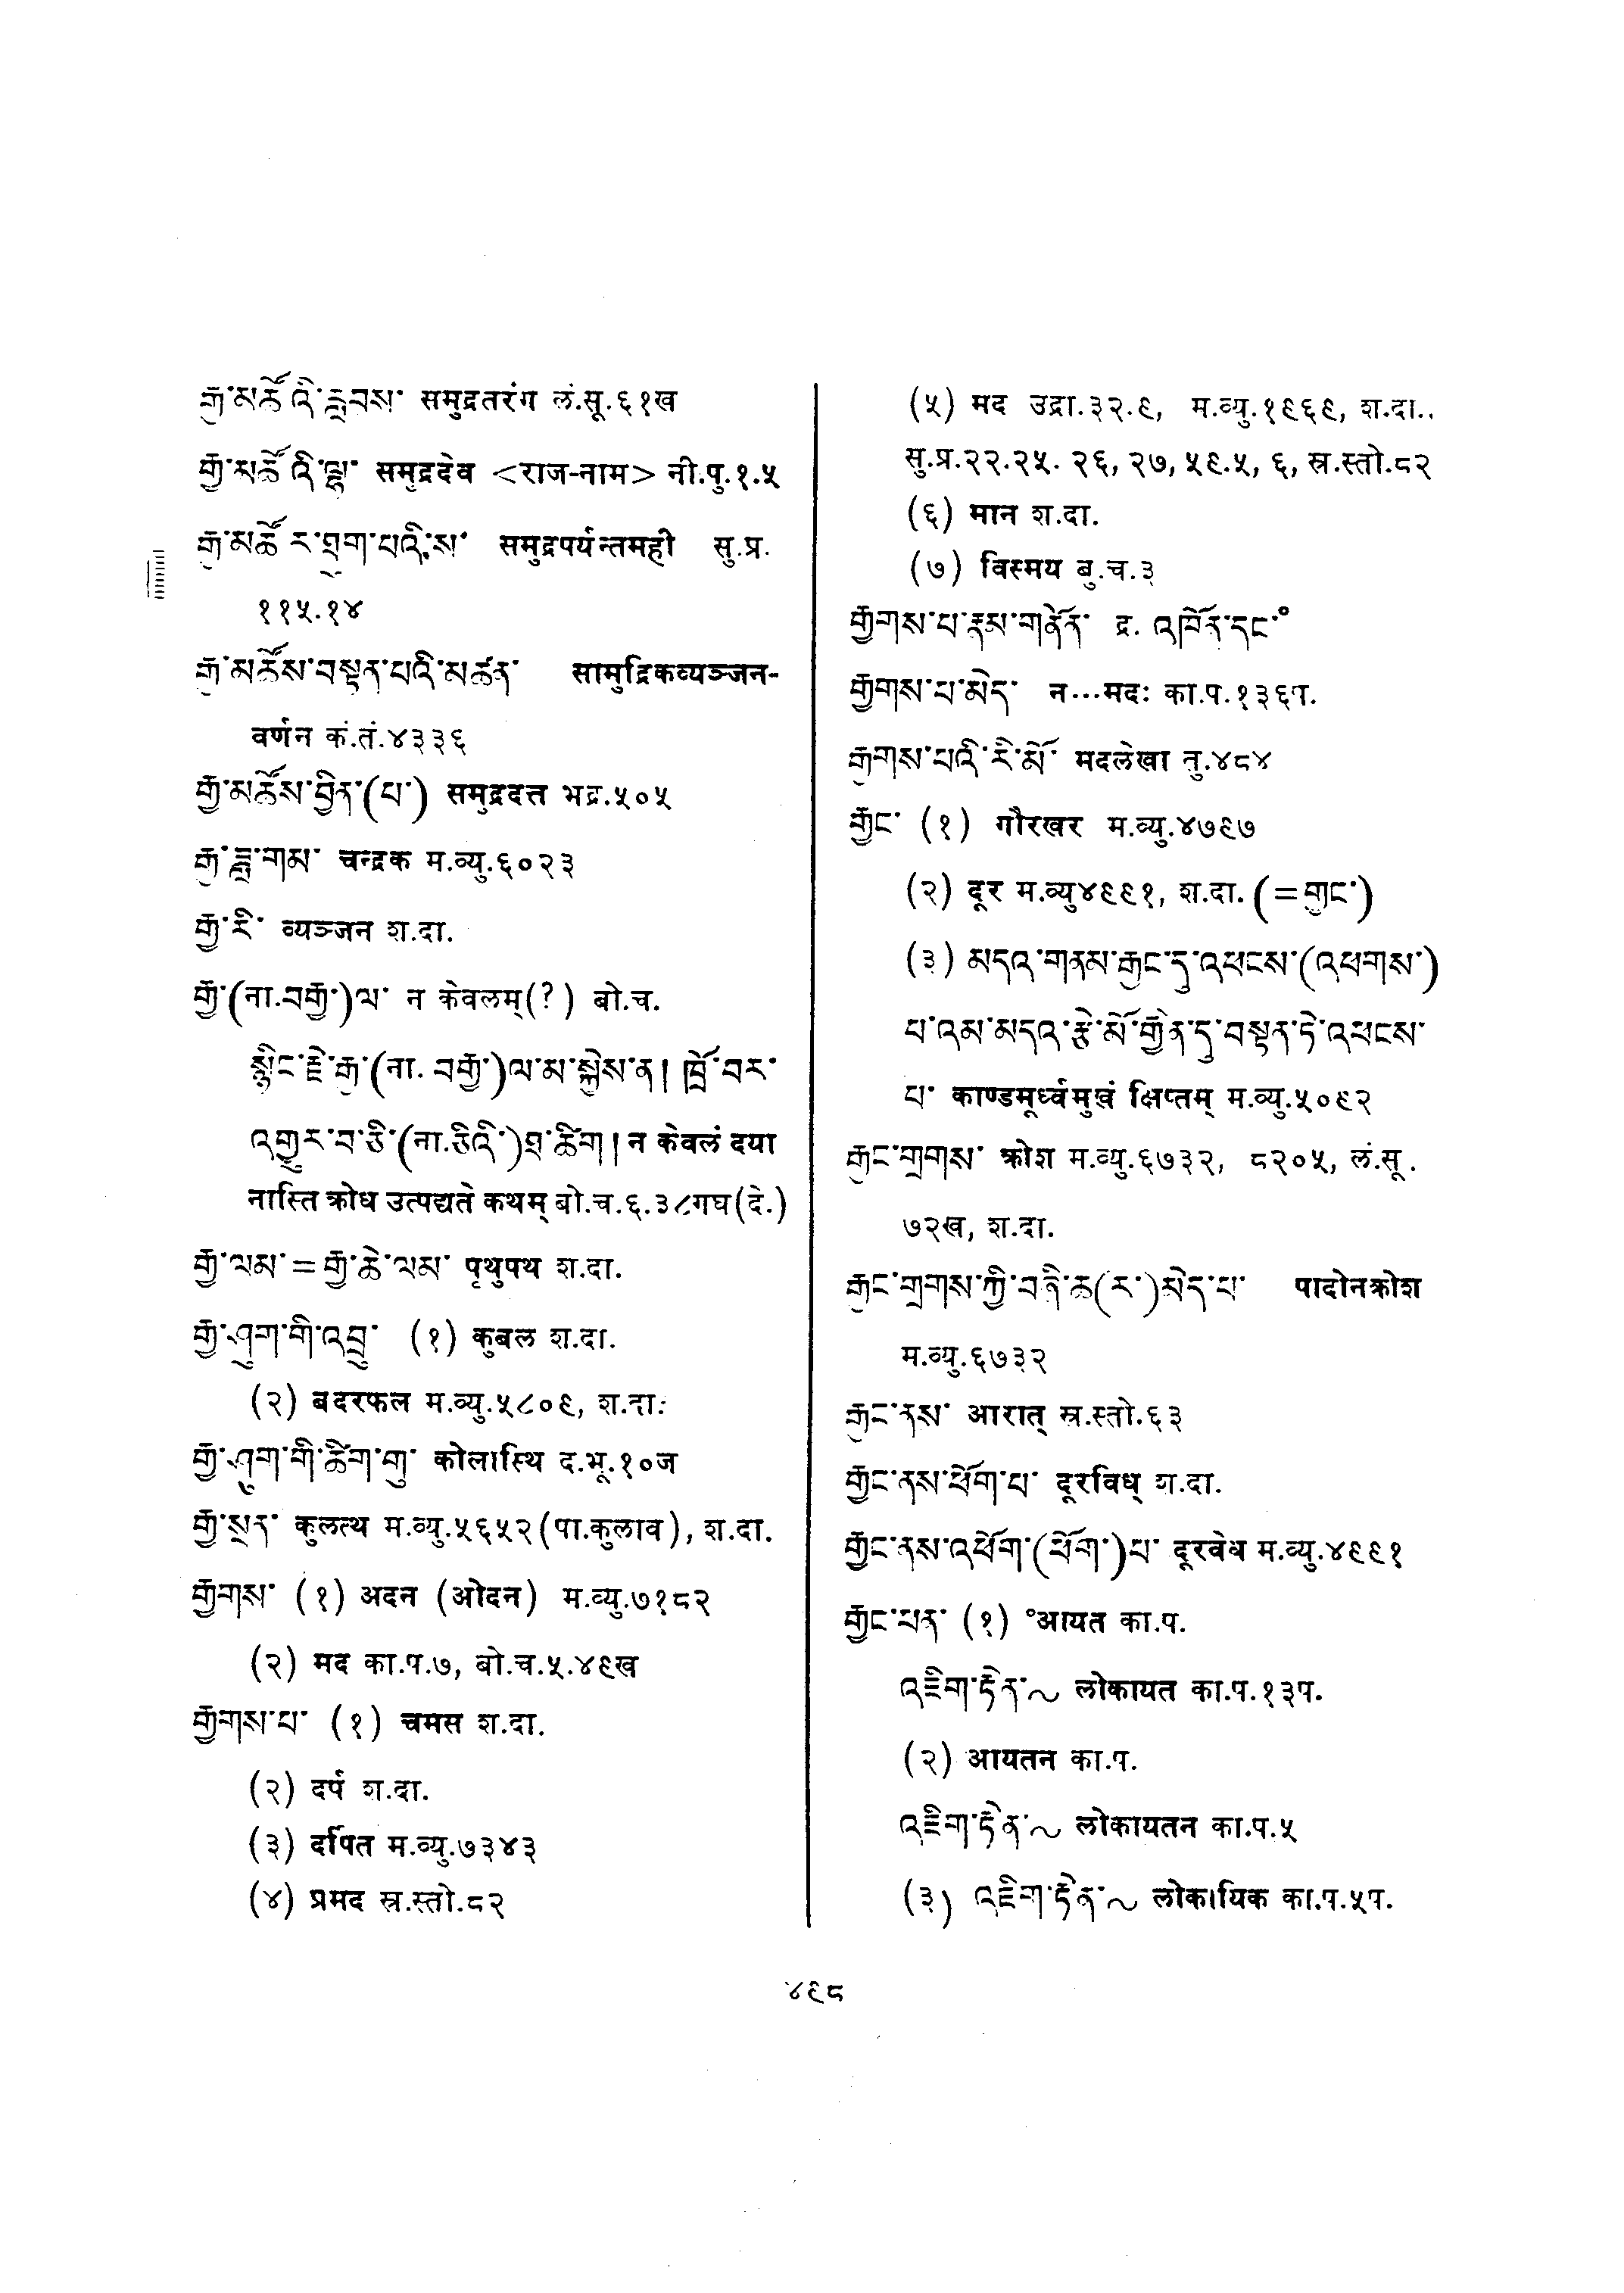 རྒྱ་མཚོའི་རླབས་ समुद्रतरंग लं.सू.६१ख
རྒྱ་མཚོའི་ལྷ་ समुद्रदेव <राज-नाम> नी.पु.१.५
རྒྱ་མཚོར་ཐུག་པའི་ས་ समुद्रपर्यन्तमही सु.प्र.
११५.१४
རྒྱ་མཚོས་བསྟན་པའི་མཚན་ सामुद्रिकव्यञ्जन-
वर्णन कं.तं.४३३६
རྒྱ་མཚོས་བྱིན་(པ་) समुद्रदत्त भद्र.५०५
རྒྱ་ཟླ་གམ་ चन्द्रक म.व्यु.६०२३
རྒྱ་རི་ व्यञ्जन श.दा.
རྒྱ་(ནཱ.བརྒྱ་)ལ་ न केवलम्(?) बो.च.
སྙིང་རྗེ་རྒྱ་(ནཱ. བརྒྱ་)ལ་མ་སྐྱེས་ན། ཁྲོ་བར་
འགྱུར་བ་ཅི་(ནཱ.ཅིའི་)ཐ་ཚིག།न केवलं दया
नास्ति क्रोध उत्पद्यते कथम् बो.च.६.३८गघ(दे.)
རྒྱ་ལམ་=རྒྱ་ཆེ་ལམ་ पृथुपथ श.दा.
རྒྱ་ཤུག་གི་འབྲུ་ (१) कुबल श.दा.
(२) बदरफल म.व्यु.५८०९, श.दा.
རྒྱ་ཤུག་གི་ཚིག་གུ་ कोलास्थि द.भू.१०ज
རྒྱ་སྲན་ कुलत्थ म.व्यु.५६५२(पा.कुलाव), श.दा.
རྒྱགས་ (१) अदन (ओदन) म.व्यु.७१८२
(२) मद का.प.७, बो.च.५.४९ख
རྒྱགས་པ་ (१) चमस श.दा.
(२) दर्प श.दा.
(३) दर्पित म.व्यु.७३४३
(४) प्रमद स्र.स्तो.८२
(५) मद उद्रा.३२.९, म.व्यु.१९६९, श.दा.,
सु.प्र.२२.२५. २६, २७, ५९.५, ६, स्र.स्तो.८२
(६) मान श.दा.
(७) विस्मय बु.च.३
རྒྱགས་པ་རྣམ་གནོན་ द्र. འཁོན་དང་°
རྒྱགས་པ་མེད་ न...मदः का.प.१३६प.
རྒྱགས་པའི་རི་མོ་ मदलेखा तु.४८४
རྒྱང་ (१) गौरखर म.व्यु.४७९७
(२) दूर म.व्यु४९९१, श.दा. (=གྱང་)
(३) མདའ་གནམ་རྒྱང་དུ་འཕངས་(འཕགས་)
པ་འམ་མདའ་རྩེ་མོ་གྱེན་དུ་བསྟན་ཏེ་འཕངས་
པ་ काण्डमूर्ध्वमुखं क्षिप्तम् म.व्यु.५०९२
རྒྱང་གྲགས་ क्रोश म.व्यु.६७३२, ८२०५, लं.सू.
७२ख, श.दा.
རྒྱང་གྲགས་ཀྱི་བཞི་ཆ(ར་)མེད་པ་ पादोनक्रोश
म.व्यु.६७३२
རྒྱང་ནས་ आरात् स्र.स्तो.६३
རྒྱང་ནས་ཕོག་པ་ दूरविध् श.दा.
རྒྱང་ནས་འཕོག་(ཕོག་)པ་ दूरवेध म.व्यु.४९९१
རྒྱང་པན་ (१) °आयत का.प.
འཇིག་རྟེན་~ लोकायत का.प.१३प.
(२) आयतन का.प.
འཇིག་རྟེན་~ लोकायतन का.प.५
(३) འཇིག་རྟེན་~ लोकायिक का.प.५प.
४९८